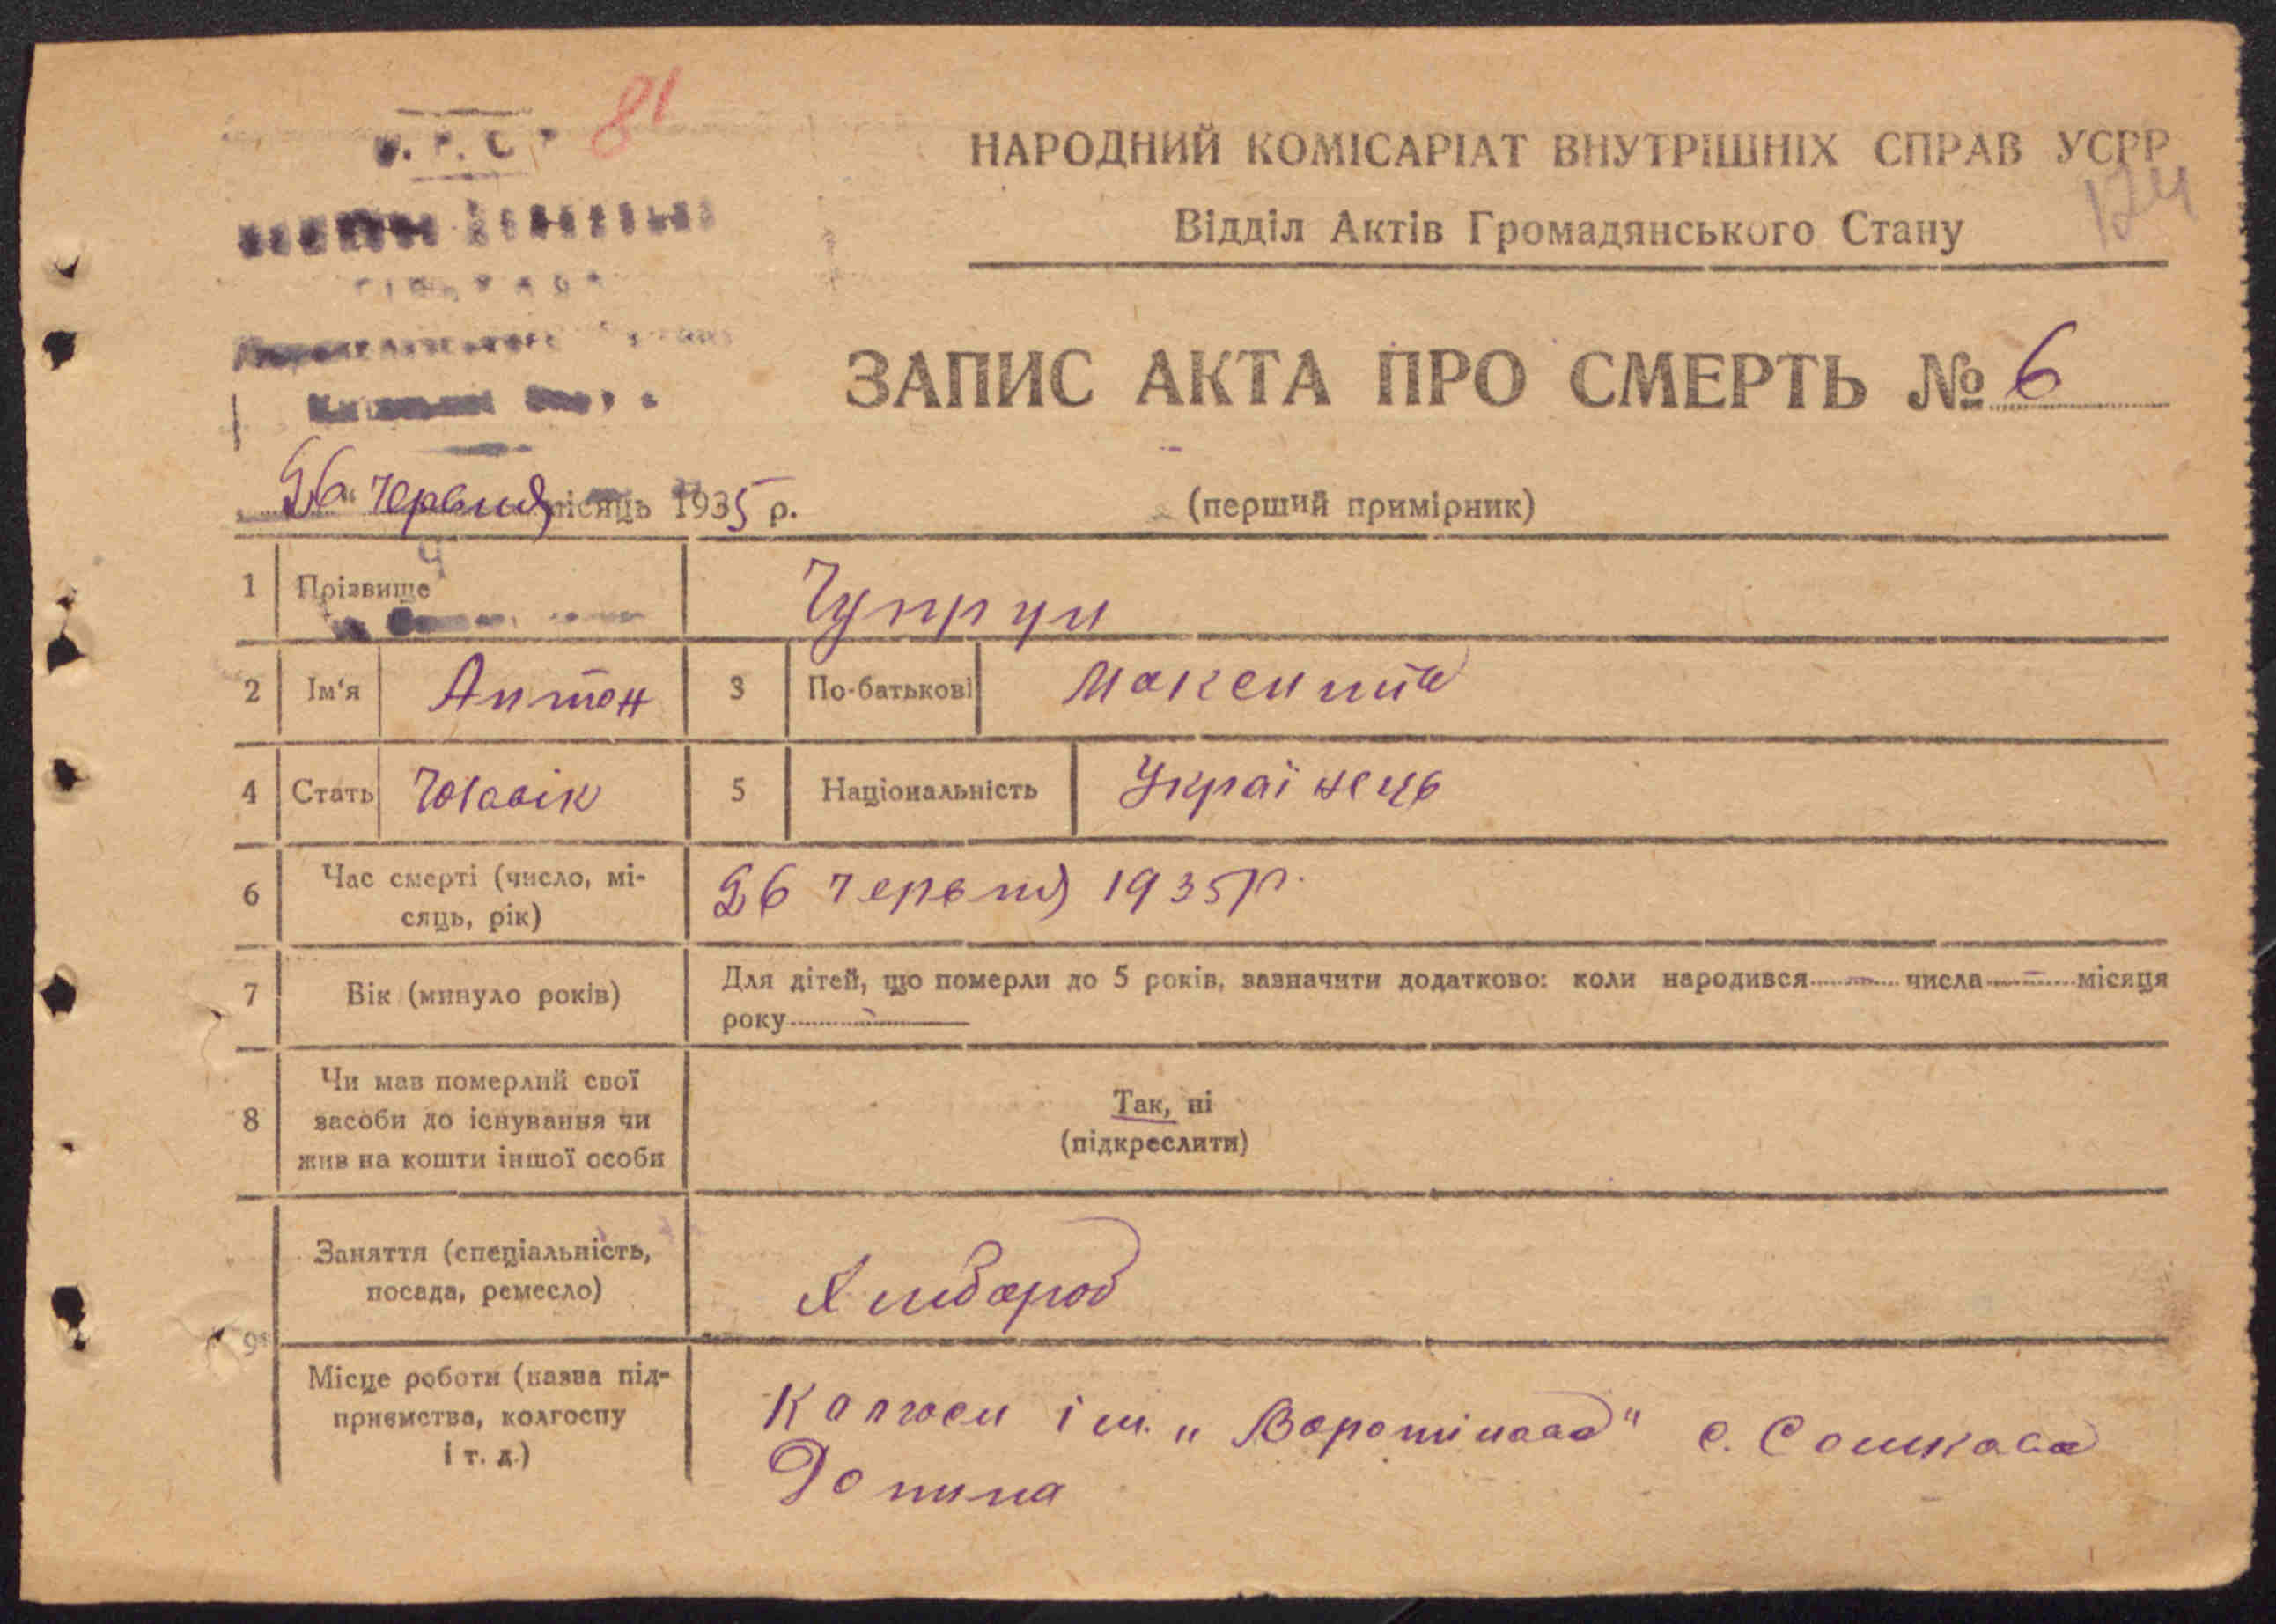 81
НАРОДНИЙ КОМІСАРІАТ ВНУТРІШНІХ СПРАВ УСРР
124
Відділ Актів Громадянського Стану
ЗАПИС АКТА ПРО СМЕРТЬ № 6
26 червня місяць 1935 р.
(перший примірник)
1 Прізвище Чупрун
2 Ім'я Антон 3 По-батькові
4 Стать Чолавік 5 Національність Українець
6 Час смерті (число, мі-
сяць, рік)
26 червня 1935р.
7 Вік (минуло років)
Для дітей, що померли до 5 років, зазначити додатково: коли народився — числа — місяця
року —
8 Чи мав померлий свої
засоби до існування чи
жив на кошти іншої особи
Так, ні
(підкреслити)
9
Заняття (спеціальність,
посада, ремесло)
Хлібороб
Місце роботи (назва під-
приємства, колгоспу
і т. д.)
ім. с.